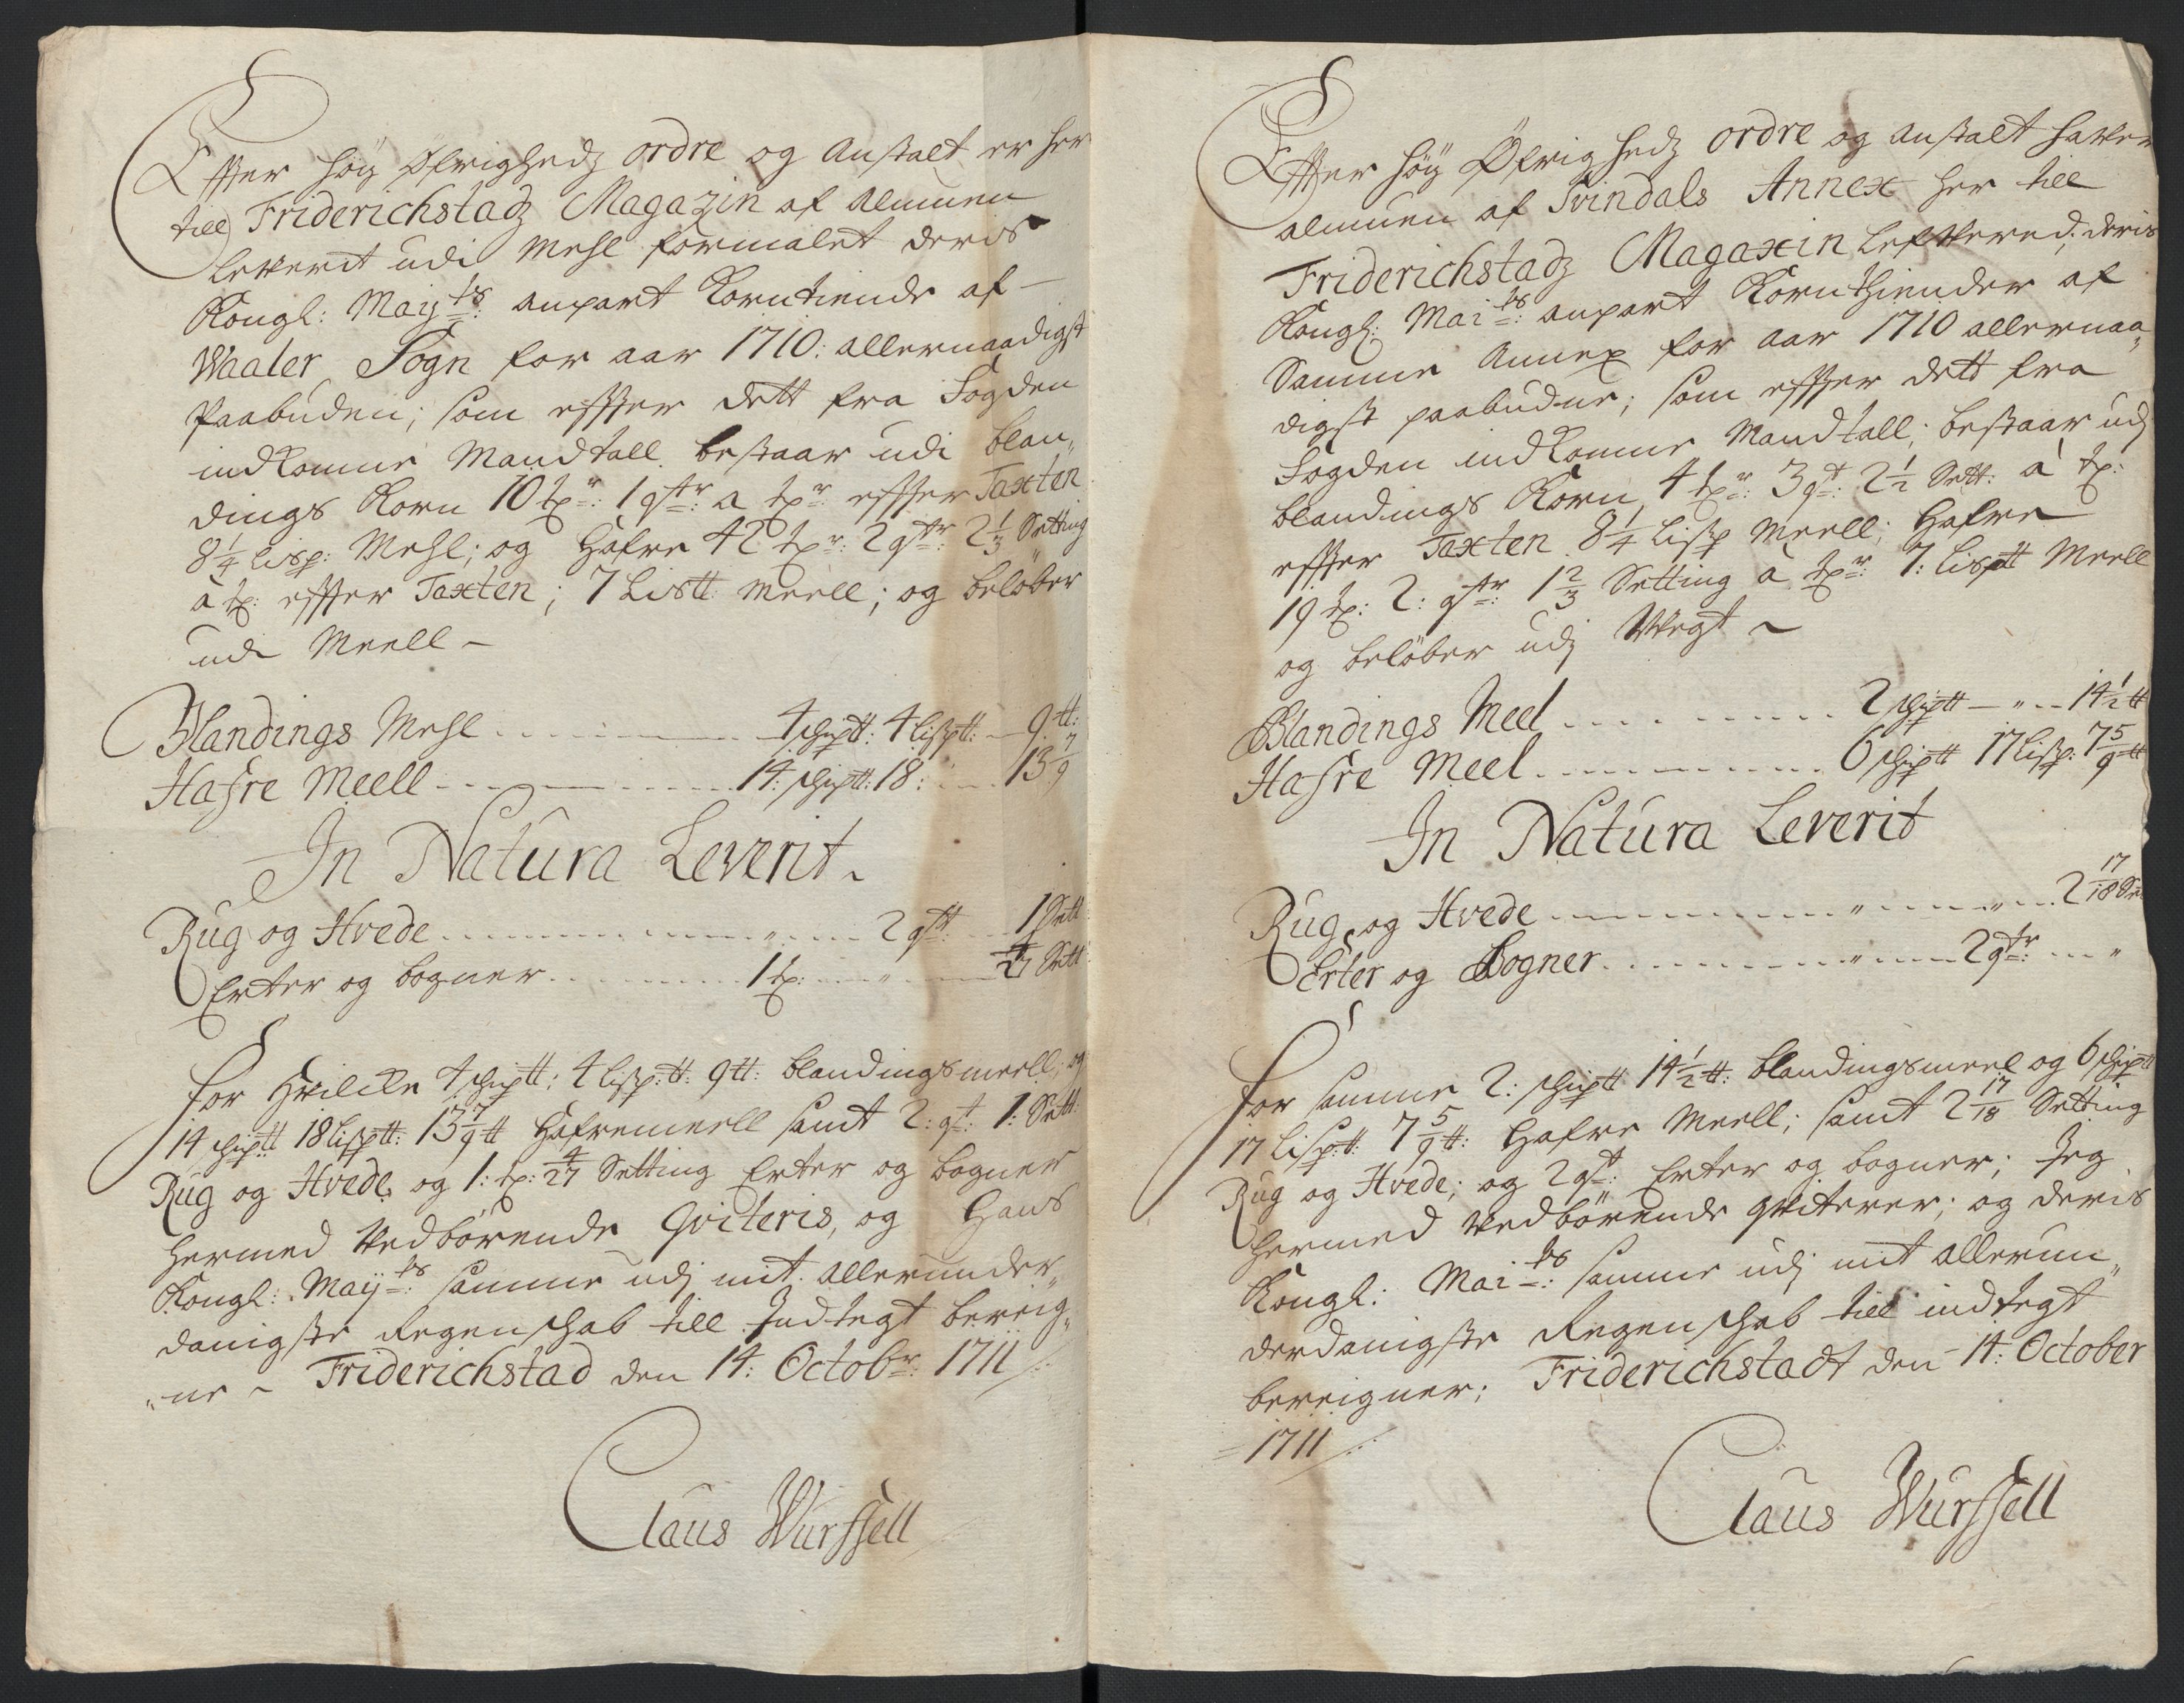 Effter høy Øfrighedz ordre og Anstalt er her
till Friderichstadz Magazin af Almuen
leverit udi Mehl formalet deris
Kongl: Maytˢ: anpart Korntiende af
Waaler Sogn for aar 1710: allernaadigst
Paabuden; som effter dett fra Fogden
indkomne Mandtall bestaar udi blan„
dings Korn 10 tøʳ: 1 qʳtʳ: a tøʳ effter Taxten
8¼ Lisp: Mehl; og Hafre 42 tøʳ: 2 qtʳ: 2⅓ Setting
à tø: effter Taxten; 7 List: Meell; og beløber
udi Meell –
Blandings Mehl 4 schipt: 4 lispt: 9 tt:
Hafre Meell 14: schipt: 18: 13 7/9
In Natura Leverit.
Rug og Hvede „ 2 qtʳ: 1 Sett
Erter og bogner 1 tø: „ 4/27 Sett
For Hvilcke 4 schipt: 4 lisp:t: 9 tt: blandingsmeell; og
14 schipt 18 lispt: 13 7/9 tt Hafremeell samt 2: qt: 1: Sett:
Rug og Hvede, og 1: tø: 4/27 Setting Erter og bogner
hermed Vedbørende Qviteris, og Hans
Kongl: Maytˢ: samme udj mit allerunder„
danigste Regenschab till Indtegt bereig„
„ne – Friderichstad den 14: Octobʳ: 1711
Claus Wurssell
Effter høy Øfrighedz ordre og anstalt haver
almuen af Svindals Annex her till
Friderichstadz Magaxin lefvered; deris
Kongl: Maitˢ: anpart Kornthiender af
Samme Annex for aar 1710 allernaa„
digst paabudne; som effter dett fra
Fogden indkomne Mandtall; bestaar udj
blandings Korn 4 tøʳ: 3 qt: 2½ Sett: à tø:
effter Taxten 8¼ Lisp Meell; Hafre
19 tø: 2: qtʳ: 1⅔ Setting à tøʳ: 7: lispt Meell
og beløber udj Vegt –
Blandings Meel 2 schipt – „ 14½ tt
Hafre Meel 6 schipt 17 lisp: 7 5/9 tt
In Natura Leverit
Rug og Hvede „ „ 2 17/18 Set
Erter og Bogner „ 2 qtʳ: „
For samme 2: schipt 14½ tt: blandingsmeel og 6 schipt
17 lisp:t: 7 5/9 tt: Hafre Meell; samt 2 17/18 Setting
Rug og Hvede; og 2 qt: Erter og bogner; Jeg
hermed Vedbørende qviterer; og deris
Kongl: Maitˢ: samme udj mit allerun„
derdanigste Regenschab till indtegt
bereigner; Friderichstadt den 14: October
1711
Claus Wurssell